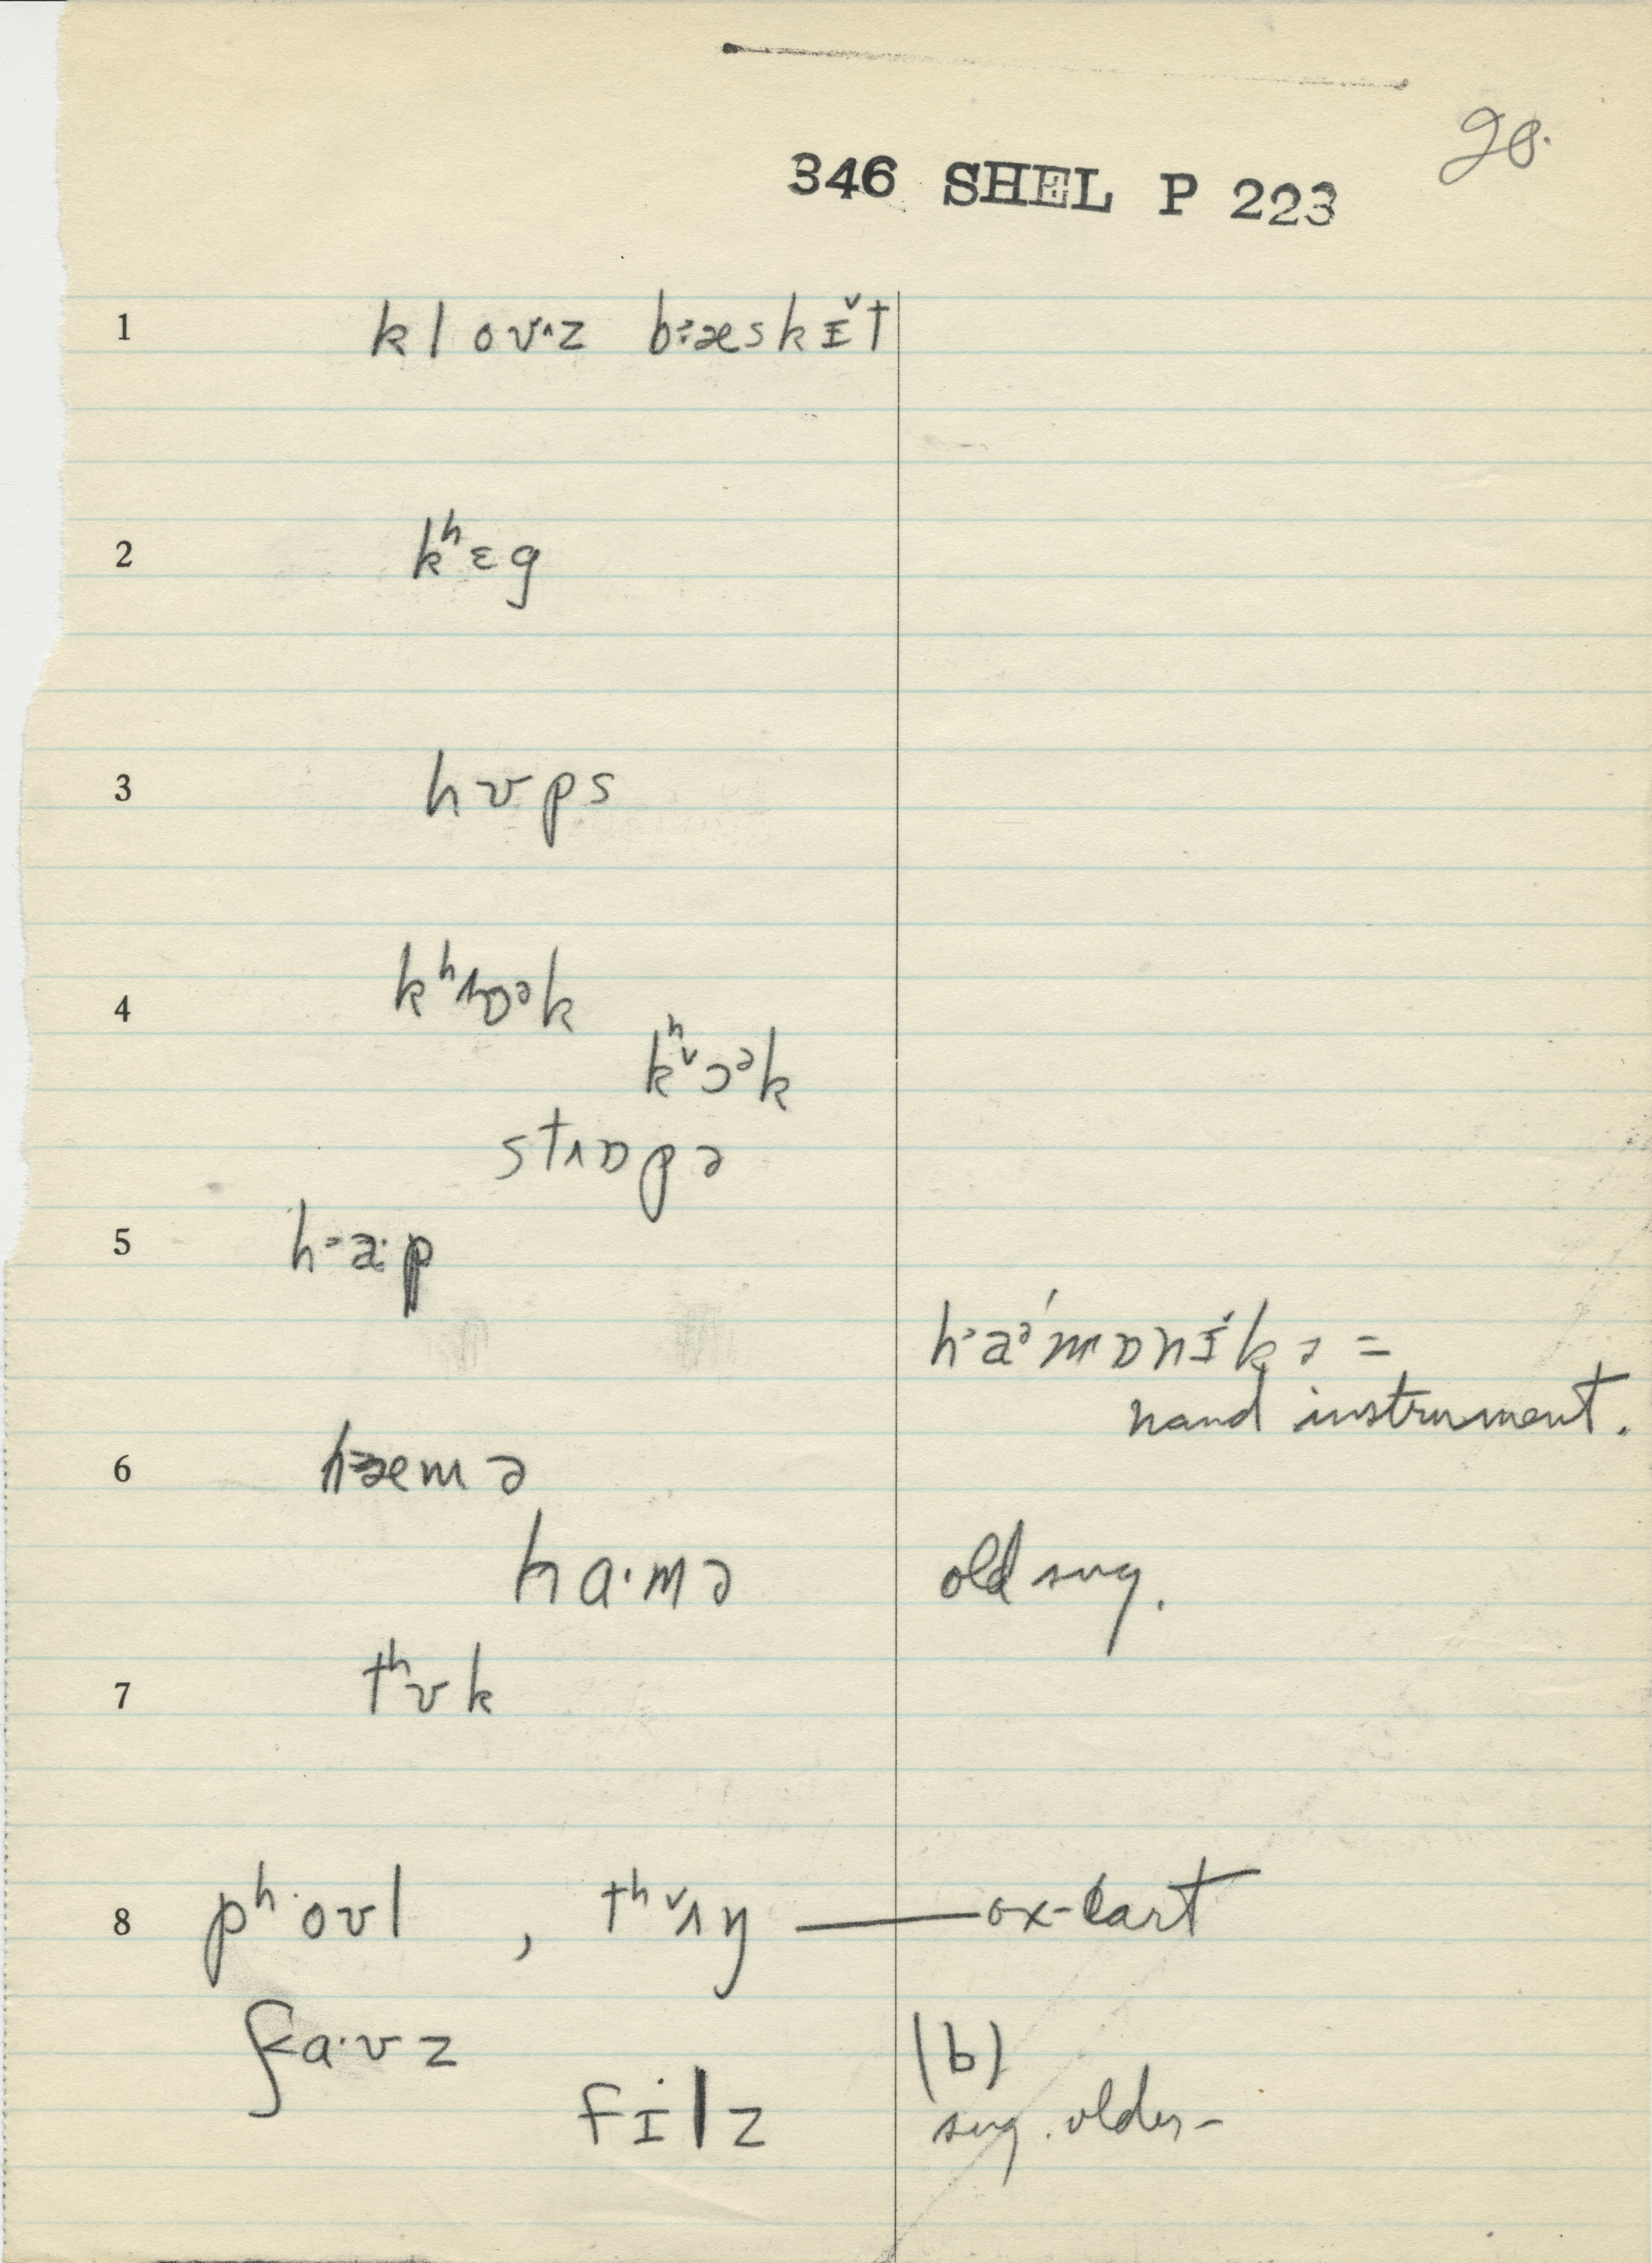 20.
346 SHEL P 223
1 kloʊ^z b˃æskɪ̌t
2 kʰɛg
3 hʊps
4 kʰʌɒᵊk
kʰˇɔᵊk
stʌɒpə
5 h˃a·p
h˃aᵊ'mɒnɪ̌kə =
hand instrument.
6 h˃æmə
ha·mə old sug.
7 tʰʊk
8 pʰ·oʊl , tʰˇʌŋ — ox-cart
f<a·ʊz (b)
fɪ˙lz sug. older-